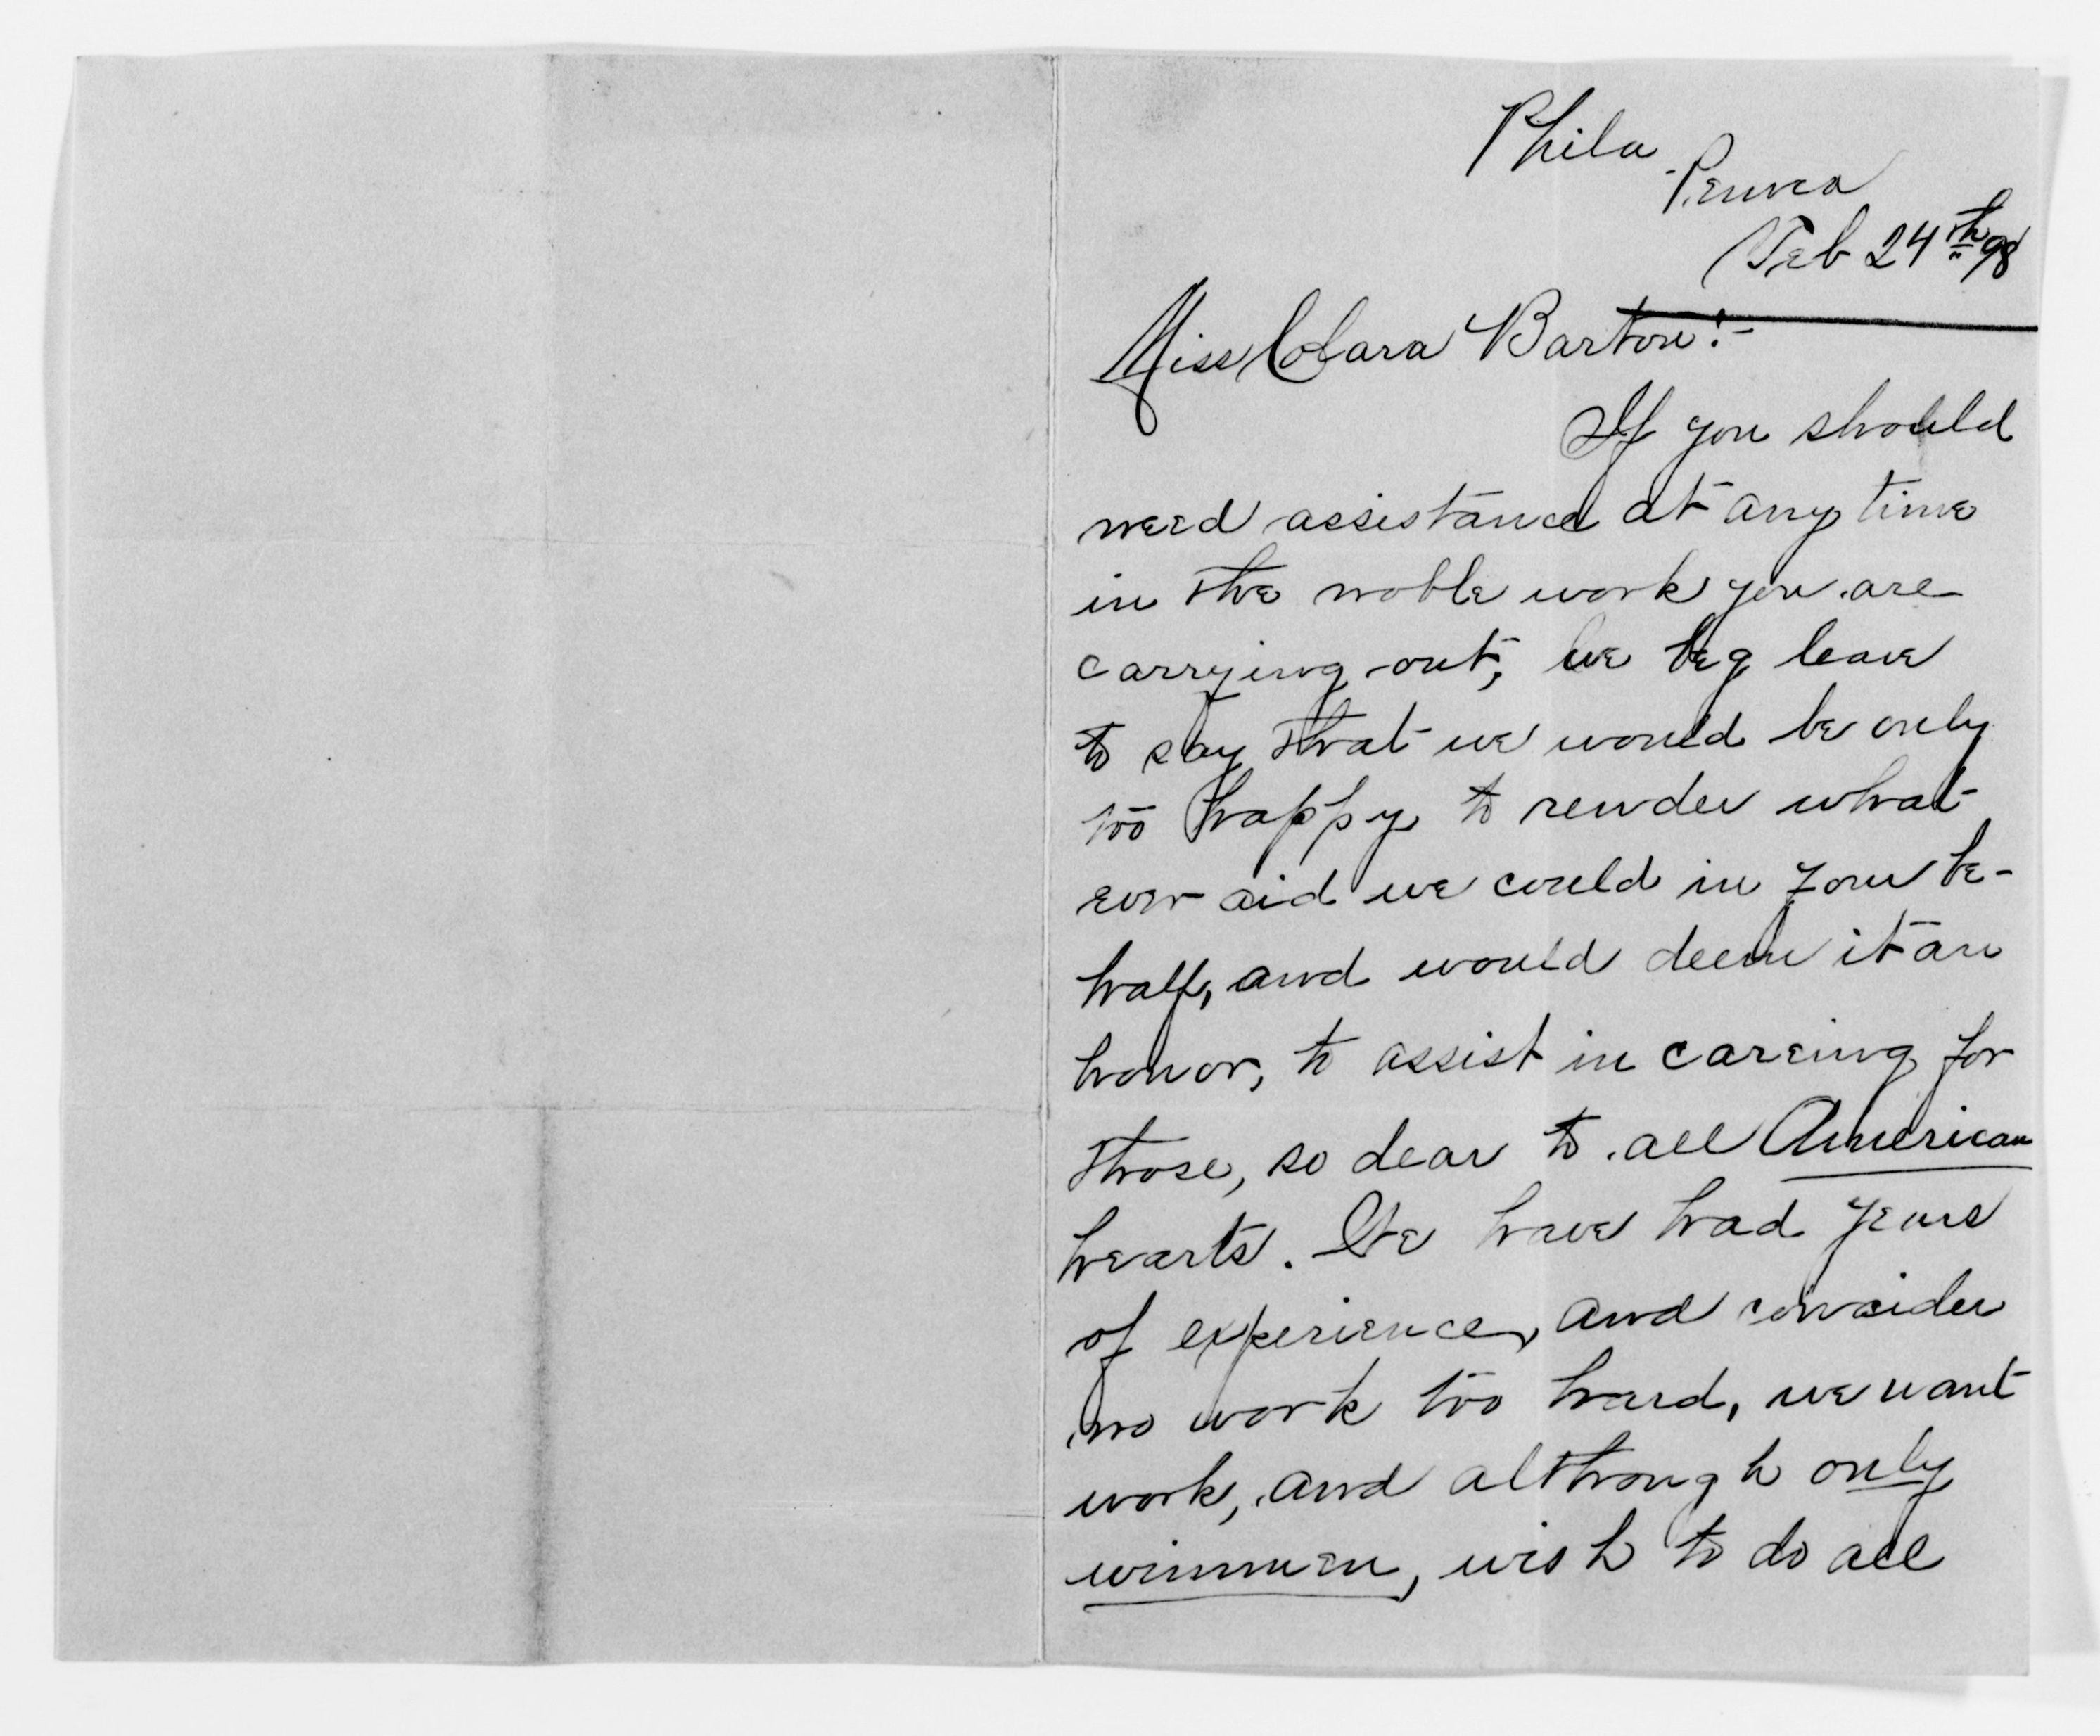 Phila
Penna
Feb 24th 98
Miss Clara Barton:-
If you should
need assistance at any time
in the noble work you are
carrying out, we beg leave
to say that we would be only
too happy to render what-
ever aid we could in your be-
half, and would deem it an
honor, to assist in careing for
those, so dear to all American
hearts. We have had years
of experience, and consider
no work too hard, we want
work, and although only
wimmen, wish to do all